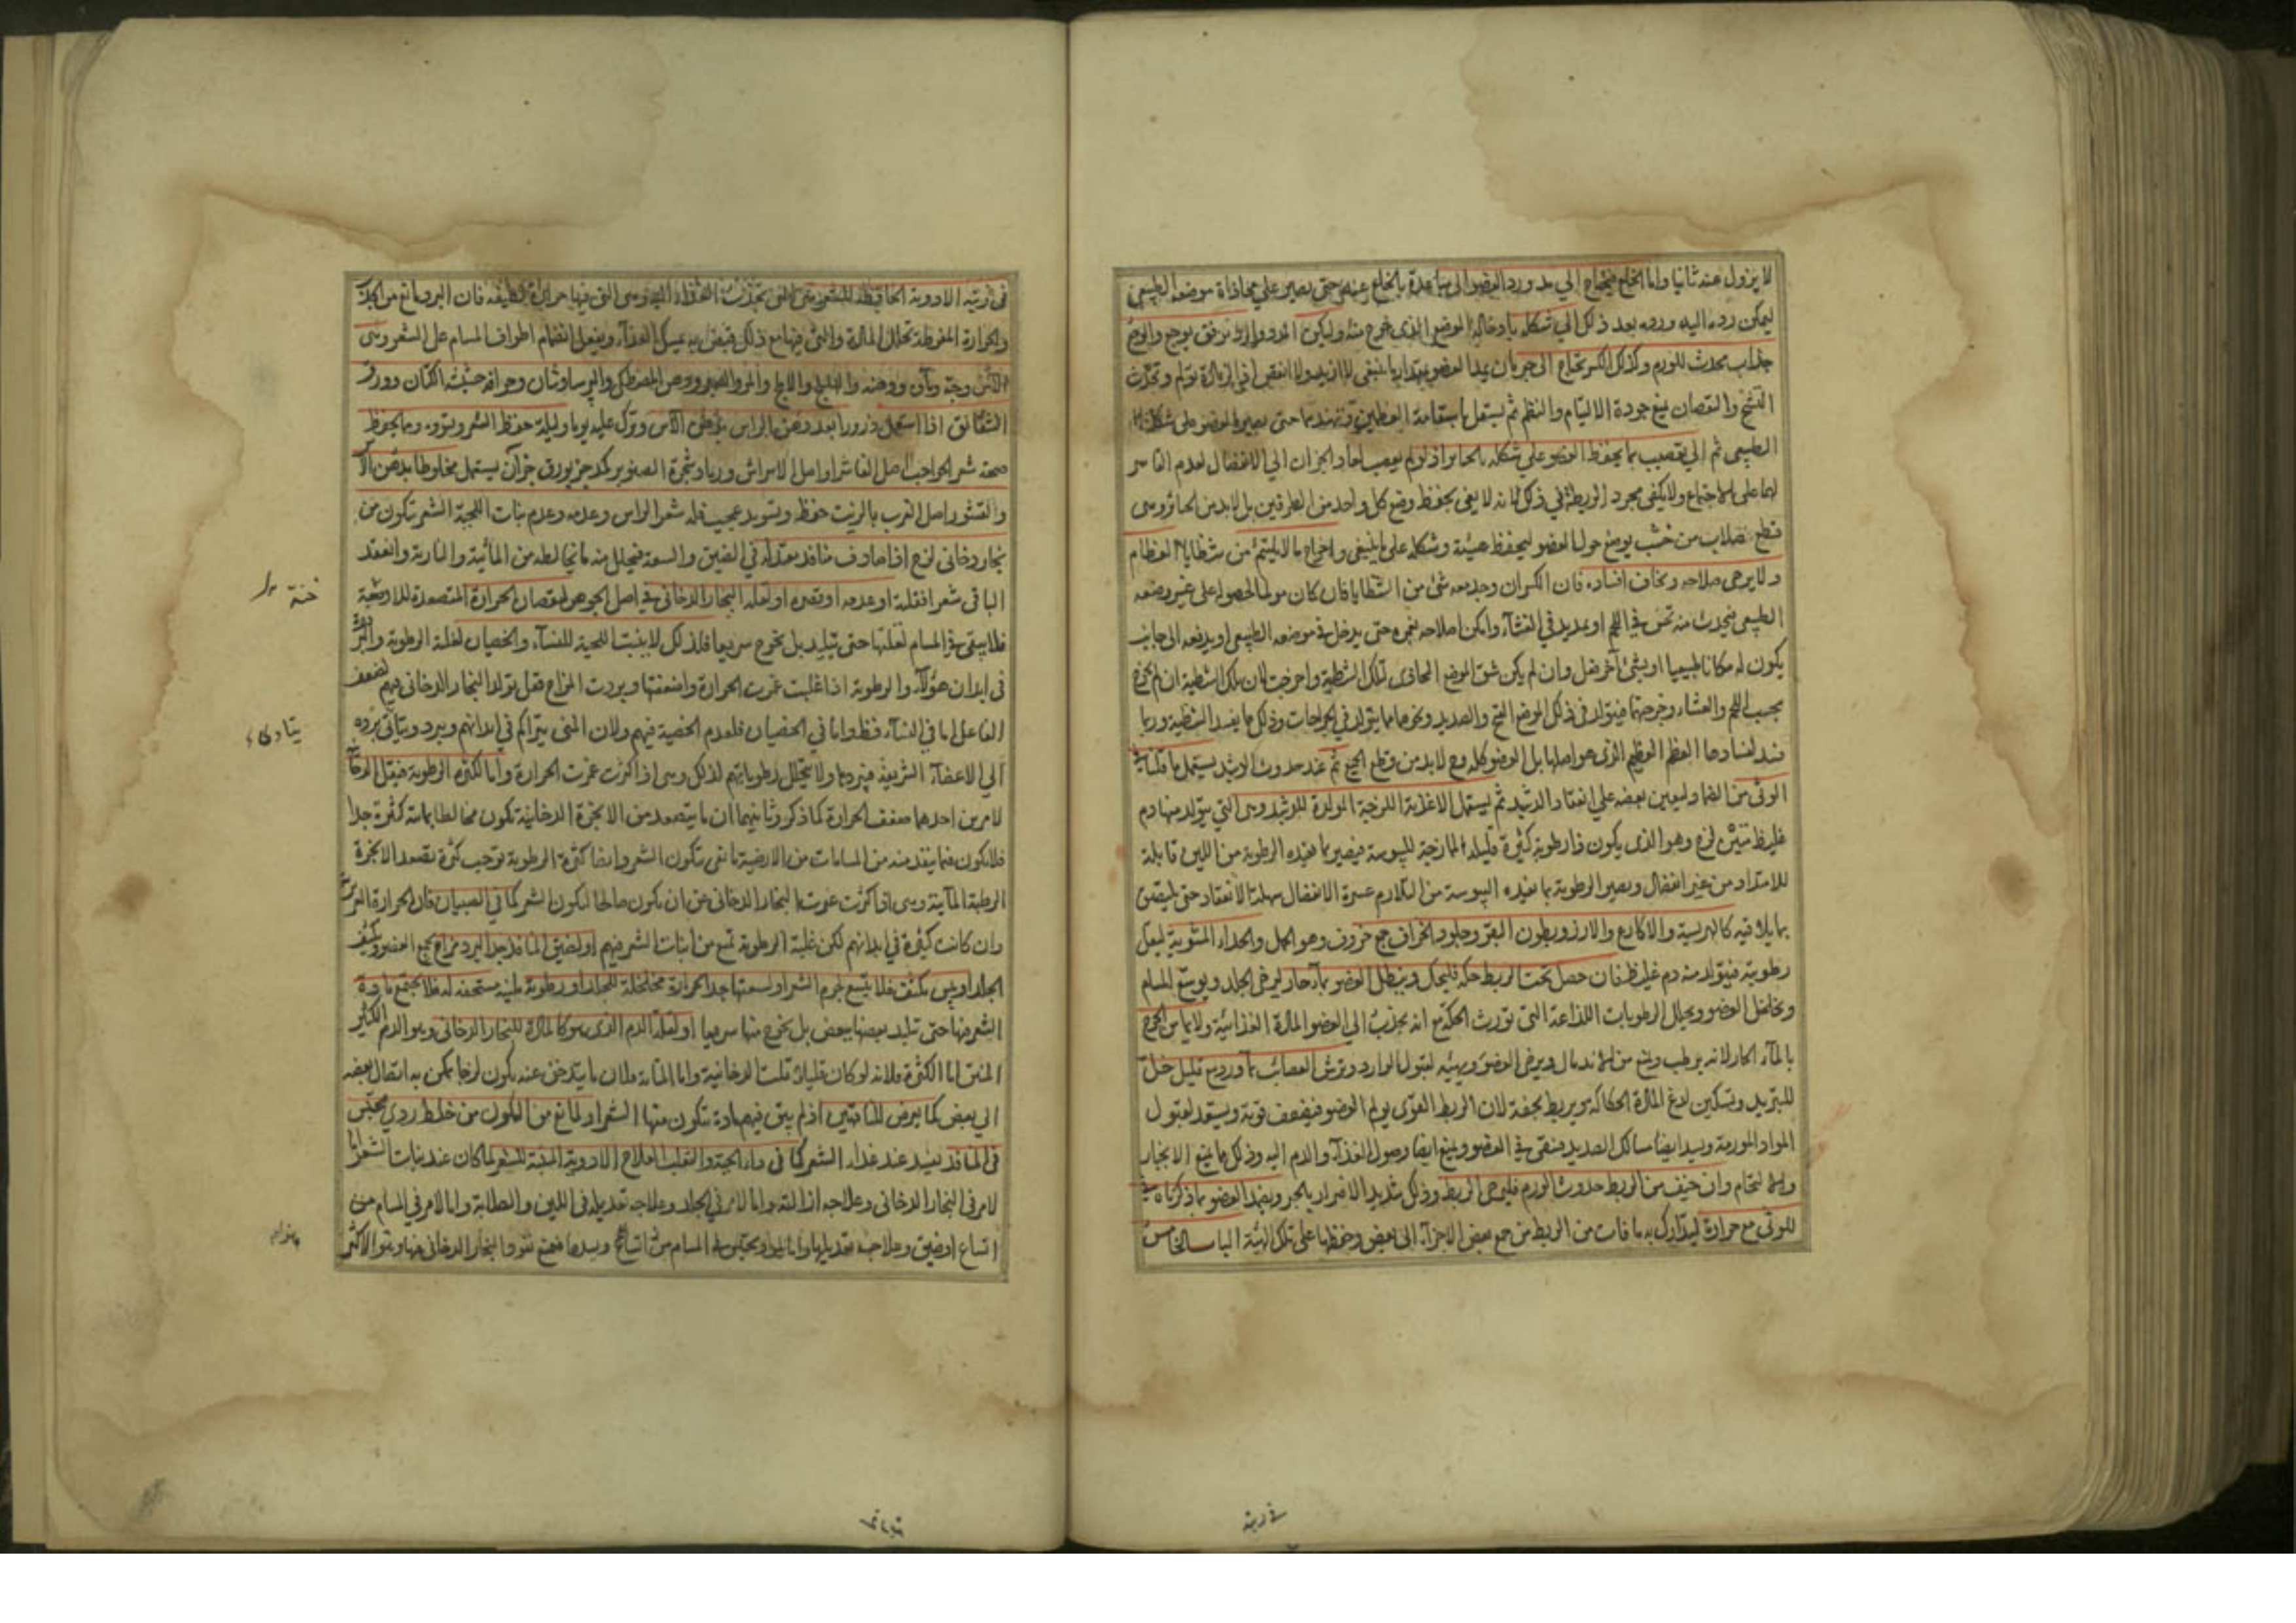 لا يزول عنه ثانيا واما الخلع فيحتاج الي مد ورد العضو الى مباعدة ما انخلع عنه حتى يصير علي محاذاة موضعه الطبيعي
ليمكن رده اليه ورده بعد ذلك الي شكله بادخاله الموضع الذى خرج منه وليكن المد والرد برفق
جذاب يحدث للورم وكذلك الكسر يحتاج الى جبر بان يمد العضو بمقدار ما ينبغي لا ازيد ولا انقص اذ الزيادة تؤلم وتحدث
التشنج والنقصان يمنع جودة الالتيام والنظم ثم يستعمل باستقامة العظمين وتهندمهما حتى يصير العضو على شكله
الطبيعي ثم الي تعصيب بما يحفظ العضو علي شكله بالجبائر اذ لو لم يعصب لعاد الجزءان الي الانفصال لعدم القاسر
لهما على الاجتماع ولا يكفى مجرد الربط في ذلك لانه لا يفى بحفظ وضع كل واحد من الطرفين بل لابد من الجبائر وهى
قطع صلاب من خشب يوضع حول العضو ليحفظ هيئته وشكله على ما ينبغى واخراج ما لا يلتئم من شظايا العظام
ولا يرجى صلاحه ويخاف افساده فان الكسر ان وجد معه شئ من الشظايا فان كان مؤلما لحصوله على غير وضعه
الطبيعي فيحدث منه نخس في اللحم او تمديد في الغشآء وامكن اصلاحه بغمزه حتى يدخل في موضعه الطبيعي او يدفعه الى جانب
يكون له مكانا طبيعيا او بشئ آخر فعل وان لم يكن شق الموضع المحاذى لتلك الشظية واخرجت لان تلك الشظية ان لم تخرج
يجب اللحم والغشاء وخرجهما فيتولد فى ذلك الموضع القيح والصديد ونحوهما مما يتولد في الجراحات وذلك مما يفسد الشظية وربما
فسد لفسادها العظم العظيم الذى هو اصلها بل العضو كله وح لابد من قطع الجميع ثم عند حدوث الوشبد يستعمل ما قلنا في
الوثى من الضماد ليعين بعضه علي انعقاد الدشبد ثم يستعمل الاغذية اللزجة المولدة للدشبد وهى التي يتولد منها دم
غليظ متين لزج وهو الذى يكون ذا رطوبة كثيرة قليلة الممازجة لليبوسة فيصير بما تفيده الرطوبة من اللين قابلة
للامتداد من غير انفصال ويصير الرطوبة بما تفيده اليبوسة من التلازم عسرة الانفصال سهلة الانعقاد حتى يلتصق
بما يلاقيه كالهريسة والاكارع والارز وبطون البقر وجلود الخراف جمع خروف وهو الحمل والجداء المشوية ليقل
رطوبته فيتولد منه دم غليظ فان حصل تحت الربط حكة فليحل وينطل العضو بمآء حار ليرخى الجلد ويوسع المسام
ويخلخل العضو ويحلل الرطوبات اللذاعة التى تورث الحكة مع انه يجذب الي العضو المادة الغذائية
بالمآء الحار لانه يرطب ويمنع من الاندمال ويرخى العضو ويهيئه لقبول الوارد وترش العصائب بمآء ورد مع قليل خل
للتبريد وتسكين لذع المادة الحكاكة ويربط بخفة لان الربط القوى يولم العضو فيضعف قوته ويستعد لقبول
المواد المورمة ويسد ايضا مسالك الصديد فيبقى في العضو ويمنع ايضا وصول الغذآء والدم اليه وذلك مما يمنع الانجبار
والالتحام وان خيف من الربط حدوث الورم فليرخ الربط وذلك شديد الاضرار بالجبر ويضمد العضو بما ذكرناه في
للوثى مع حرارة ليتدارك به ما فات من الربط من جمع بعض الاجزآء الى بعض وحفظها على تلك الهيئة الباب الخامس
في زينة
في زينة الادوية الحافظة للشعر هى التى تجذب الغذاء اليه وهى التى فيها حرارة لطيفة فان البرد مانع من الجذب
والحرارة المفرطة تحلل المادة والتى فيها مع ذلك قبض به يمسك الغذآء ويفعل انضمام اطراف المسام على الشعر وهى
الآس وحبه ومآؤه ودهنه والهليلج والاملج والمر والصبر ودهن المصطكى والبرسياوشان وحراقة خشب الكتان وورق
الشقائق اذا استعمل ذرورا بعد دهن الراس بدهن الآس وترك عليه يوما وليلة حفظ الشعر وقواه ومما يحفظ
صحة شعر الحواجب اصل الفاشرا واصل الاسراش ورماد شجرة الصنوبر
والقشور اصل القرب بالزيت حفظ وتسويد عجيب قلة شعر الراس وعدمه وعدم نبات اللحية الشعر تكون من
بخار دخانى لزج اذا صادف منافذ معتدلة في الضيق والسعة فيتحلل منه ما يخالطه من المائية والنارية وانعقد
الباقى شعرا فقلته او عدمه او تقصره او لقلة البخار الدخانى في اصل الجوهر لنقصان الحرارة المتصعدة للادخنة
فلا يبقى في المسام لقلتها حتى يتلبد بل تخرج سريعا فلذلك لا ينبت اللحية للنسآء والخصيان لغلبة الرطوبة والبرودة
فى ابدان هؤلآء والرطوبة اذا غلبت غمرت الحرارة واضعفتها وبردت المزاج فقل تولد البخار الدخانى فيهم لضعف
الفاعل اما فى النسآء فظ واما في الخصيان فلعدم الخصية فيهم ولان المنى يتراكم في ابدانهم ويبرد ويتأدى برده
الي الاعضآء الشريفة فيبردها ولا يتحلل رطوباتهم لذلك وهى اذا كثرت غمرت الحرارة واما لكثرة الرطوبة فيقل الدخان
لامرين احدهما ضعف الحرارة كما ذكر وثانيهما ان ما يتصعد من الابخرة الدخانية تكون مخالطا بمائية كثيرة جدا
فلا يكون فيما ينفد منه من المسامات من الارضية ما تفى بتكون الشعر وايضا كثرة الرطوبة توجب كثرة تصعد الابخرة
الرطبة المآئية وهى اذا كثرت عوقت البخار الدخانى عن ان يكون صالحا لتكون الشعر كما في الصبيان فان الحرارة الغريزية
وان كانت كثيرة في ابدانهم لكن غلبة الرطوبة تمنع من انبات الشعر فيهم او لضيق المنافذ جدا لبرد مزاج يجمع العضو ويكثف
الجلد او يبس يكثف فلا يتسع لجرم الشعر او لسعتها جدا لحرارة مخلخلة للجلد او رطوبة ملينة فلا يجتمع مادة
الشعر فيها حتى تتلبد بعضها ببعض بل يخرج منها سريعا او لقلة الدم الذى هو كالمادة للبخار الدخانى وهو الدم الكثير
المتين اما الكثرة فلانه لو كان قليلا قلت الدخانية واما المتانة فلان ما يتدخن عنه يكون لزجا يمكن به اتصال بعضه
الي بعض كما يعرض للناقهين اذ لم يبق فيهم مادة تتكون منها الشعر او لمانع من التكون من خلط ردي محتبس
فى المنافذ يفسد عنه غذاء الشعر كما فى داء الحية والثعلب العلاج الادوية المنبتة للشعر لما كان عند نبات الشعر اما
لامر فى البخار الدخانى وعلاجه ازالته واما لامر في الجلد وعلاجه تعديله فى اللين والصلابة واما لامر في المسام من
اتساع او ضيق وعلاجه تعديلها
خنة
يتادى
نباتها